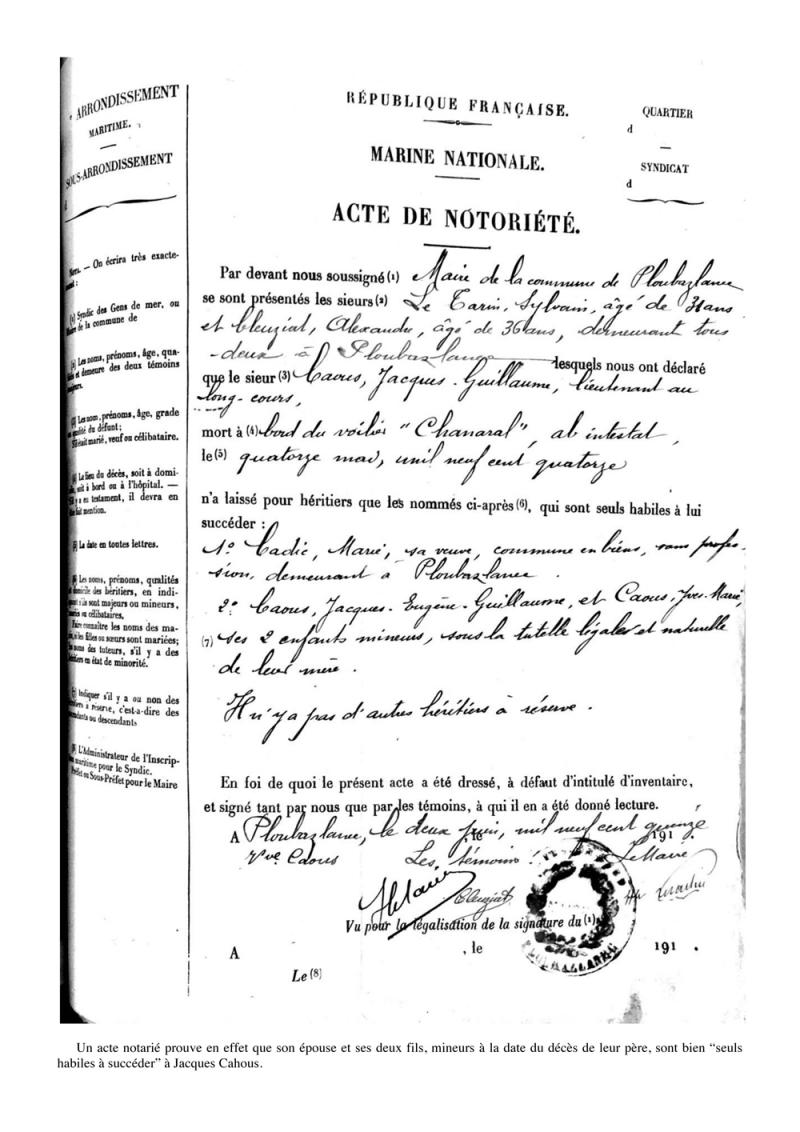 ARRONDISSEMENT
MARITIME.
SOUS-ARRONDISSEMENT
d
Nota. — On écrira très exacte-
ment :
(1) Syndic des Gens de mer, ou
Maire de la commune de
(2) Les noms, prénoms, âge, qua-
lités et demeure des deux témoins
majeurs.
(3) Les nom, prénoms, âge, grade
ou qualité du défunt;
S'il était marié, veuf ou célibataire.
(4) Le lieu du décès, soit à domi-
cile, soit à bord ou à l'hôpital. —
S'il y a eu testament, il devra en
être fait mention.
(5) La date en toutes lettres.
(6) Les noms, prénoms, qualités
et domicile des héritiers, en indi-
quant s'ils sont majeurs ou mineurs,
mariés ou célibataires.
Faire connaître les noms des ma-
ris, si les filles ou sœurs sont mariées;
les noms des tuteurs, s'il y a des
héritiers en état de minorité.
(7) Indiquer s'il y a ou non des
héritiers à réserve, c'est-à-dire des
ascendants ou descendants
(8) L'Administrateur de l'Inscrip-
tion maritime pour le Syndic.
Préfet ou Sous-Préfet pour le Maire
RÉPUBLIQUE FRANÇAISE.
MARINE NATIONALE.
ACTE DE NOTORIÉTÉ.
QUARTIER
d
SYNDICAT
d
Par devant nous soussigné (1) Maire de la commune de Ploubazlanec
se sont présentés les sieurs (2) Le Tarin, Sylvain, âgé de 31 ans
et Cleuziat, Alexandre, âgé de 36 ans, demeurant tous
-deux à Ploubazlanec lesquels nous ont déclaré
que le sieur (3) Caous, Jacques-Guillaume, lieutenant au
long-cours,
mort à (4) bord du voilier "Chanaral", ab intestat,
le (5) quatorze mai, mil neuf cent quatorze
n'a laissé pour héritiers que les nommés ci-après (6), qui sont seuls habiles à lui
succéder :
1º Cadic, Marie, sa veuve, commune en biens, sans profes-
sion, demeurant à Ploubazlanec.
2º Caous, Jacques-Eugène-Guillaume, et Caous, Yves-Marie,
(7) ses 2 enfants mineurs, sous la tutelle légale et naturelle
de leur mère.
Il n'y a pas d'autres héritiers à réserve.
En foi de quoi le présent acte a été dressé, à défaut d'intitulé d'inventaire,
et signé tant par nous que par les témoins, à qui il en a été donné lecture.
A Ploubazlanec, le deux juin, mil neuf cent quinze 191
Vve Caous Les témoins: Le Maire
Cleuziat
Vu pour la légalisation de la signature du (1)
A , le 191 .
Le (8)
Un acte notarié prouve en effet que son épouse et ses deux fils, mineurs à la date du décès de leur père, sont bien “seuls
habiles à succéder” à Jacques Cahous.